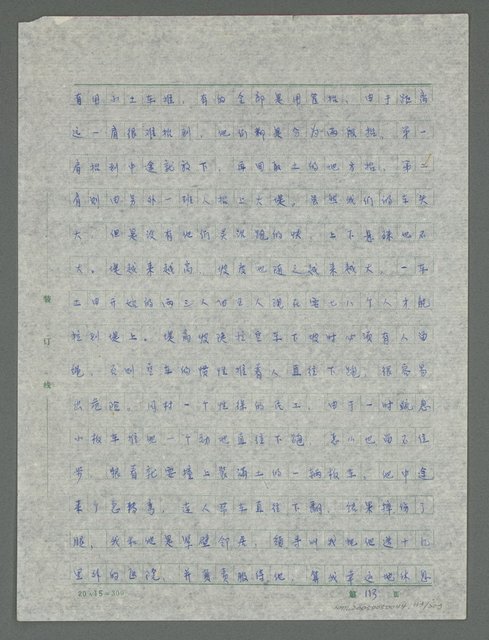 有用小土车推，有的全部是用筐抬，由于距离
这一肩很难抬到，他们都是分为两段抬，第一
肩抬到中途就放下，再回取土的地方抬，第二
肩则由另外一班人抬上大堤。虽然我们的车
大，但是没有他们灵跑的快，上下悬殊也不
大。堤越来越高，坡度也随之越来越大，一车
土由开始的两三人，现在要七八个人才能
拉到堤上。堤高坡陡拉空车下坡时必须有人
绳，否则空车的惯性推着人直往下跑，很容易
出危险。同村一个姓徐的民工，由于一时疏忽
小板车推他一个劲地直往下跑，怎么也留不住
步，眼看就要撞上装满土的一辆板车，他中途
来个急转弯，连人带车直往下翻，结果摔伤了
腿，我和他是隔壁邻居，领导叫我把他送十几
里外的医院，并负责服侍他，算我幸运地休息
装
订
线
20×15=300
第 113 页